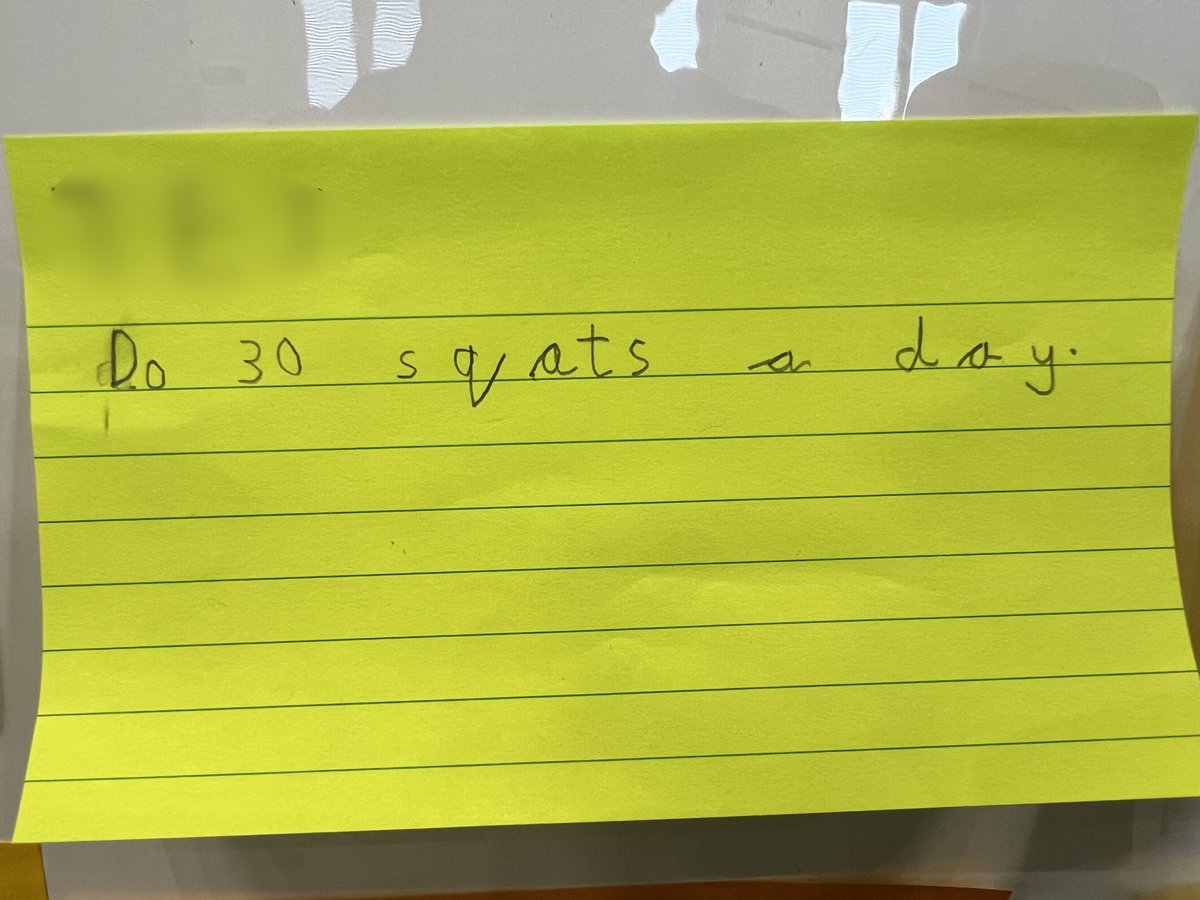 Do 30 sqats a day.